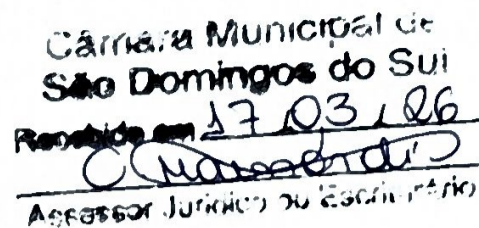 Câmara Municipal de
São Domingos do Sul
Recebido em 17/03/26
Assessor Jurídico ou Escriturário